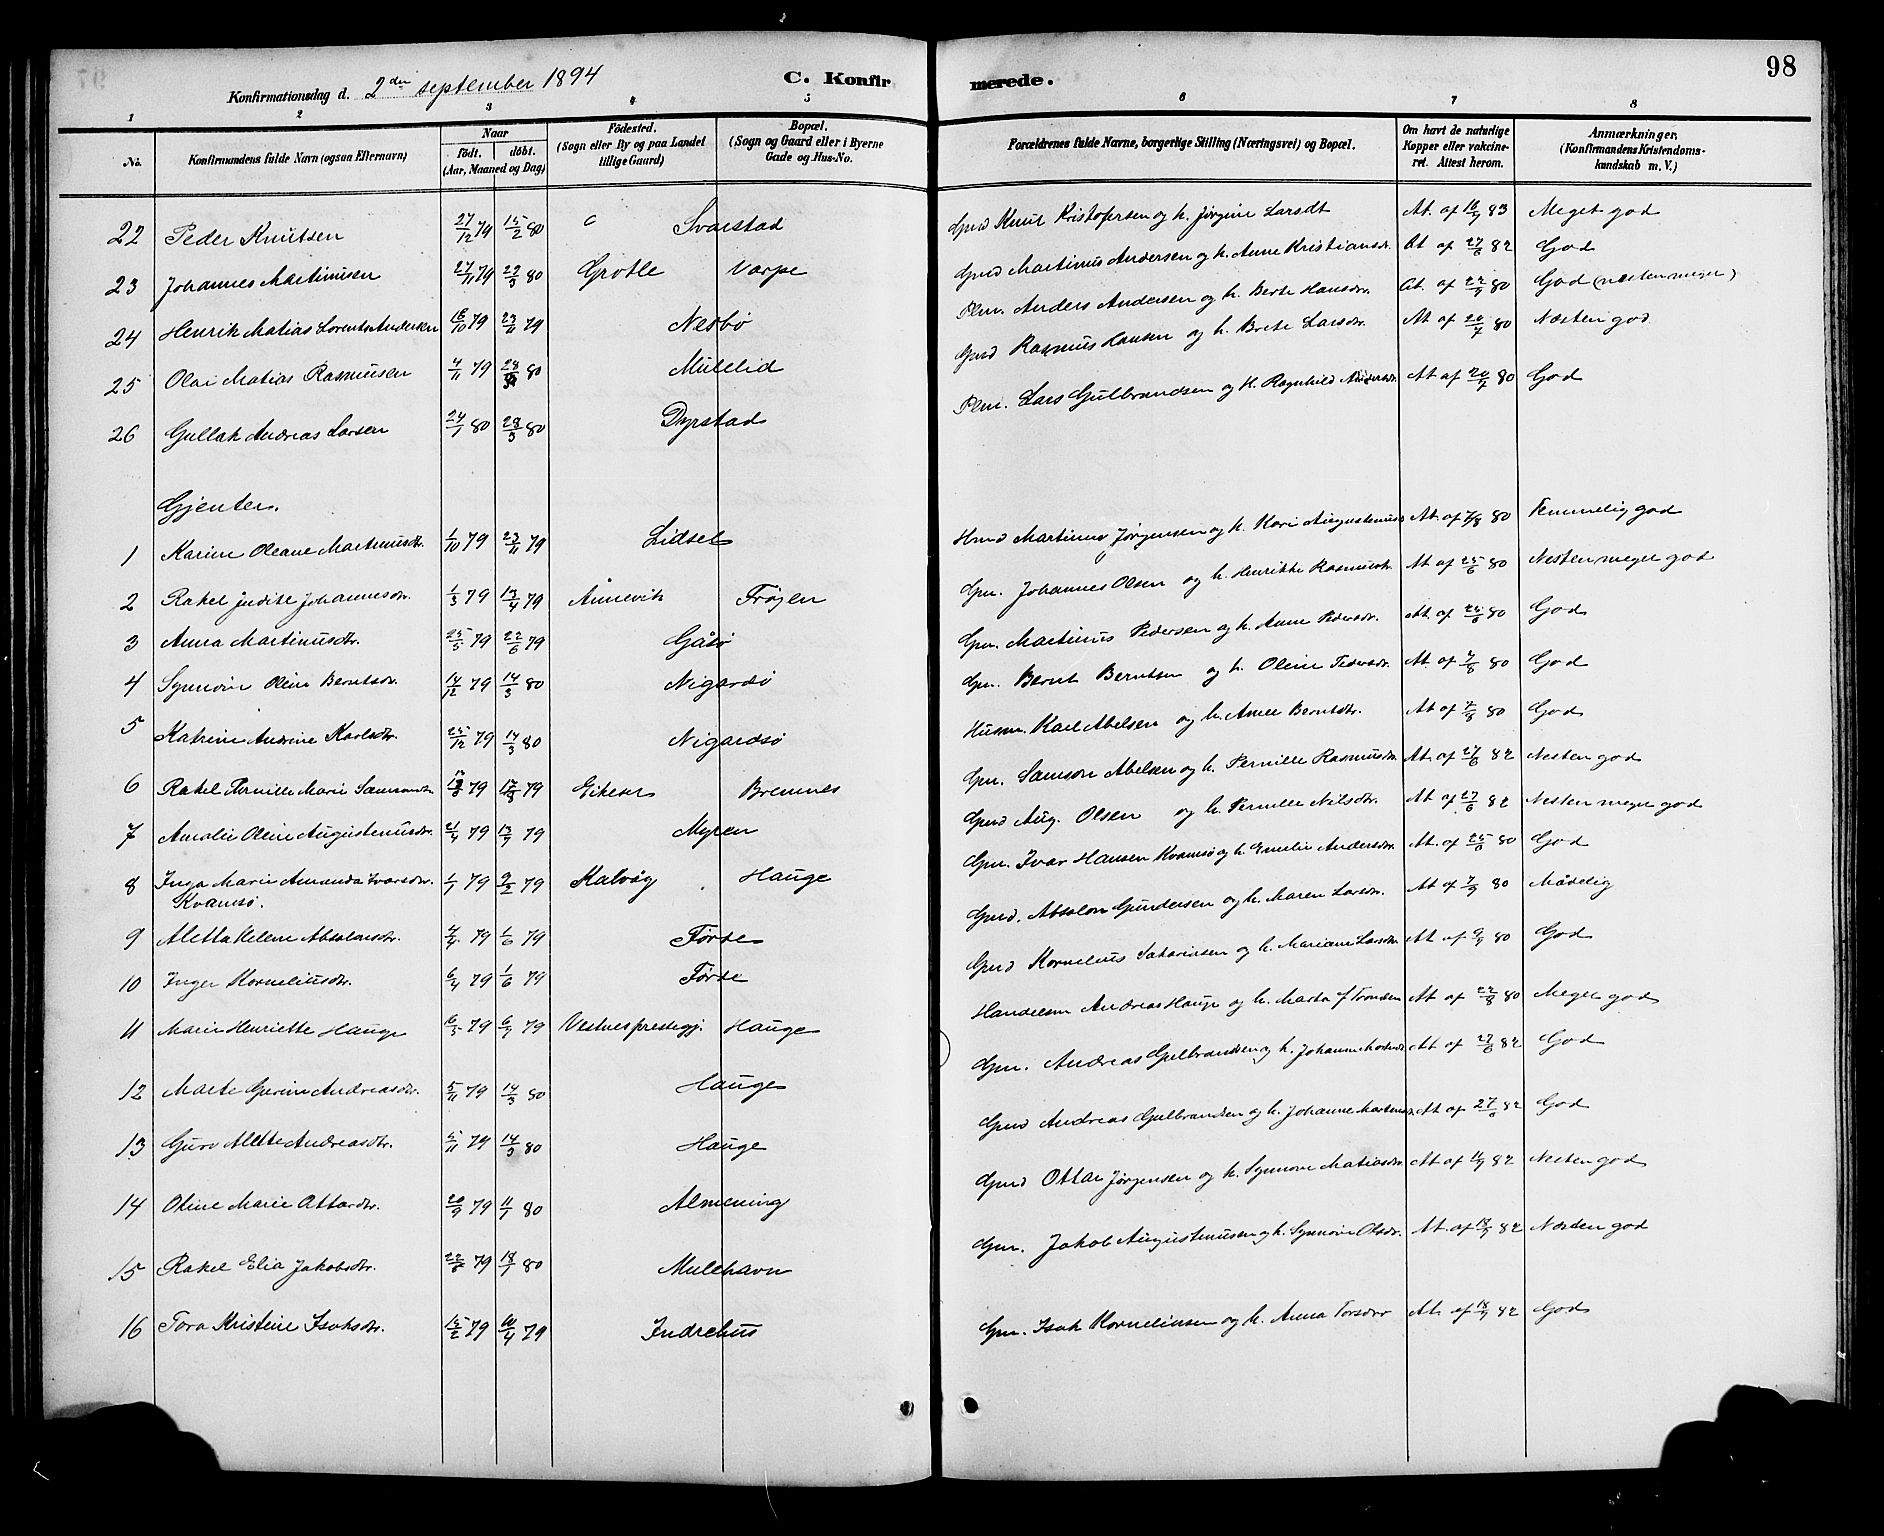 98
Konfirmationsdag d. 2den september 1894 C. Konfirmerede.
1 2 3 4 5 6 7 8
No. Konfirmandens fulde Navn (ogsaa Efternavn) Naar födt. döbt. (Aar, Maaned og Dag) Födested. (Sogn eller By og paa Landet tillige Gaard) Bopæl. (Sogn og Gaard eller i Byerne Gade og Hus-No. Forældrenes fulde Navne, borgerlige Stilling (Næringsvei) og Bopæl. Om havt de naturlige Kopper eller vakcineret. Attest herom. Anmærkninger. (Konfirmandens Kristendomskundskab m. V.)
22 Peder Knutsen 27/12 79 15/2 80 Svarstad Gmd Knut Kristofersen og h. Jørgine Larsdt At. af 16/9 83 Meget god
23 Johannes Martinusen 27/11 79 29/3 80 Grotle Varpe Gmd Martinus Andersen og h. Anne Kristiansdr. At af 27/6 82 God
24 Henrik Matias Lorents Andersen 16/10 79 23/11 79 Nesbø Plm. Anders Andersen og h. Berte Hansdr. At. af 22/9 80 God (næsten meget)
25 Olai Matias Rasmusen 4/11 79 80 Mulelid Gmd Rasmus Hansen og h. Brete Larsdr. At af 20/7 80 Næsten god
26 Gullak Andreas Larsen 24/1 80 28/3 80 Dyrstad Plm. Lars Gulbrandsen og h. Ragnhild Andersdr. At af 20/7 80 God
Gjenter.
1 Karine Oleane Martinusdr. 1/10 79 23/11 79 Lidsel Hmd Martinus Jørgensen og h. Kari Augustinusd At. af 7/8 80 Temmelig god
2 Rakel Judite Johannesdr. 1/3 79 13/4 79 Ånnevik Frøjen Gm. Johannes Olsen og h. Henrikke Rasmusdr. At af 25/6 80 Nesten meget god
3 Anna Martinusdtr. 25/5 79 22/6 79 Gåsø Gm. Martinus Pedersen og h. Anne Pedersdr. At. af 25/6 80 God
4 Synnøve Oline Berntsdr. 14/12 79 14/3 80 Nigardsø Gm. Bernt Berntsen og h. Oline Pedersdr. At. af 7/8 80 God
5 Katrine Andrine Karlsdtr. 25/12 79 14/3 80 Nigardsø Husm. Karl Abelsen og h. Anne Berntsdtr. At af 7/8 80 God
6 Rakel Pernille Marie Samsonsdr. 79 79 Bremnes Gm. Samson Abelsen og h. Pernille Rasmusdr At. af 27/6 82 Nesten god
7 Amalie Oline Augustinusdr. 21/4 79 13/7 79 Myren Gmd Aug. Olsen og h. Pernille Nilsdtr. At af 27/6 82 Nesten meget god
8 Inga Marie Amanda Ivarsdr. 1/1 79 9/2 79 Kalvåg Hauge Gm. Ivar Hansen Kvamsø og h. Emelie Andersdr At. af 25/6 80 God
Kvamsø.
9 Aletta Helene Absalonsdtr. 4/4 79 1/6 79 Førde Gmd. Absalon Gundersen og h. Maren Larsdr. At af 7/9 80 Mådelig
10 Inger Korneliusdtr. 6/4 79 1/6 79 Førde Gmd Kornelius Sakariasen og h. Mariane Larsdtr At af 9/9 80 God
11 Marie Henriette Hauge 6/5 79 6/7 79 Vestnes prestegj. Hauge Handelsm Andreas Hauge og h. Marta f. Tronden At af 22/8 80 Meget god
12 Marte Gurine Andreasdtr. 5/11 79 14/3 80 Hauge Gm. Andreas Gulbrandsen og h. Johanne Mortensdr At af 27/6 82 God
13 Guro Alette Andreasdtr. 5/11 79 14/3 80 Hauge Gmd Andreas Gulbrandsen og h. Johanne Martens At af 27/6 82 God
14 Oline Marie Ottarsdtr. 20/9 79 11/1 80 Almening Gmd Ottar Jørgensen og h. Synnøve Matiasdr At. af 11/9 82 Nesten god
15 Rakel Elia Jakobsdtr. 79 18/1 80 Mulehavn Gm. Jakob Augustinusen og h. Synnøve Olsdr. At. af 18/9 82 Næsten god
16 Tora Kristine Isaksdtr. 15/2 79 10/4 79 Indrehus Gm. Isak Korneliusen og h. Anna Torsdtr At. af 18/9 82 God